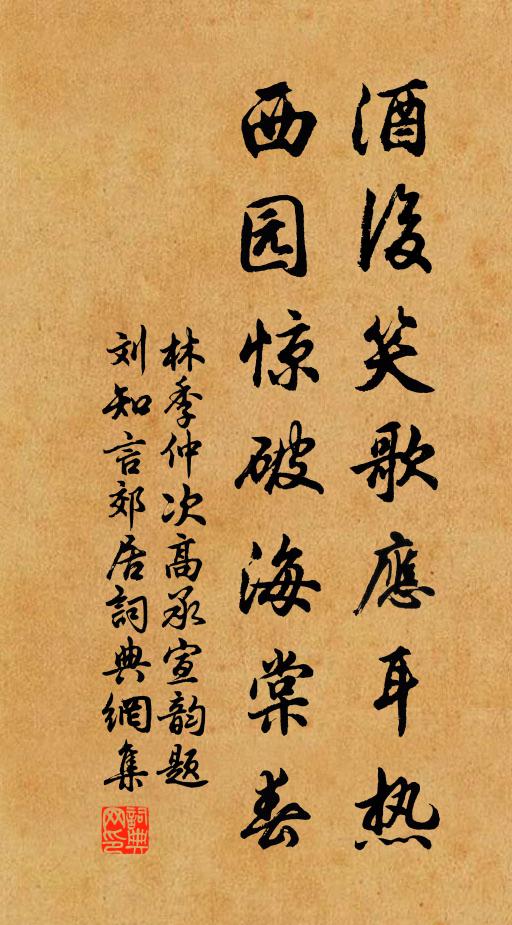 酒後笑歌應耳热
西园惊破海棠春
林季仲次高承宣韵题
刘知言郊居詞典網集
詞典网印